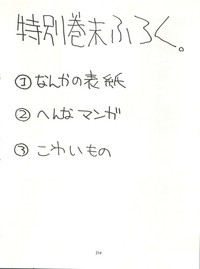 特別巻末ふろく。
① なんかの表紙
② へんなマンガ
③ こわいもの